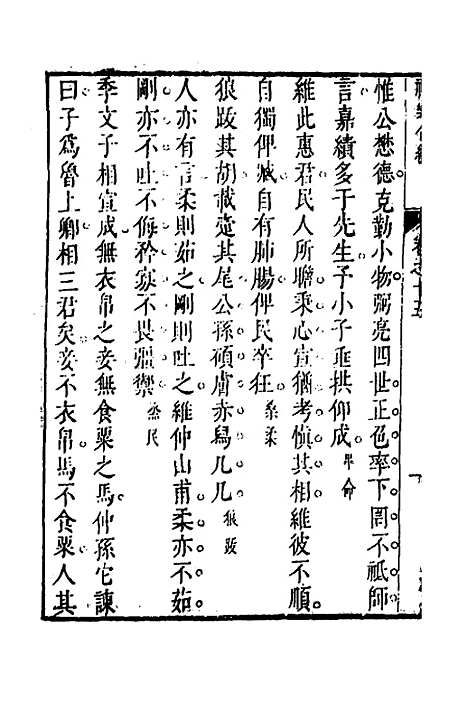 惟公懋德克勤小物弼亮四世正色率下罔不祗師
言嘉績多于先生予小子垂拱仰成畢命
維此惠君民人所瞻秉心宣猶考慎其相維彼不順
自獨俾臧自有肺腸俾民卒狂桑柔
狼跋其胡載疐其尾公孫碩膚赤舄几几狼跋
人亦有言柔則茹之剛則吐之維仲山甫柔亦不茹
剛亦不吐不侮矜寡不畏彊禦烝民
季文子相宣成無衣帛之妾無食粟之馬仲孫它諫
曰子爲魯上卿相三君矣妾不衣帛馬不食粟人其